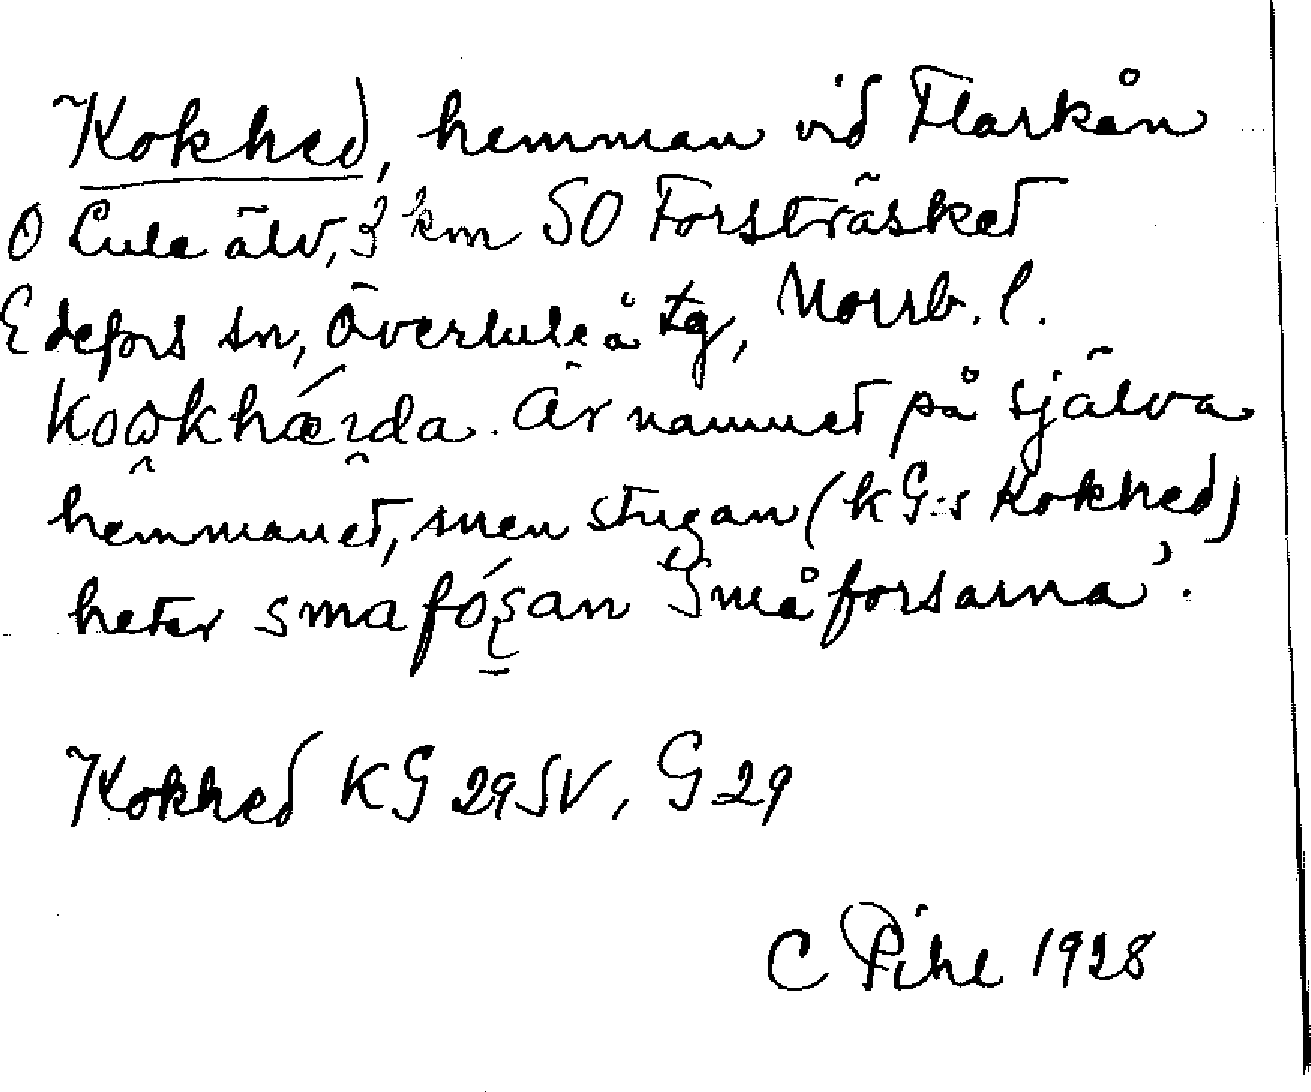 Kokhed, hemman vid Flarkån
O Lule älv, 3 km SO Forsträsket
Edefors sn, Överluleå tg, Norrb. l.
Är namnet på själva
hemmanet, men stugan (kG:s Kokhed)
heter smafǫ́ṣan 'Småforsarna'.
Kokhed KG 29 SV, G 29
C Pihl 1928